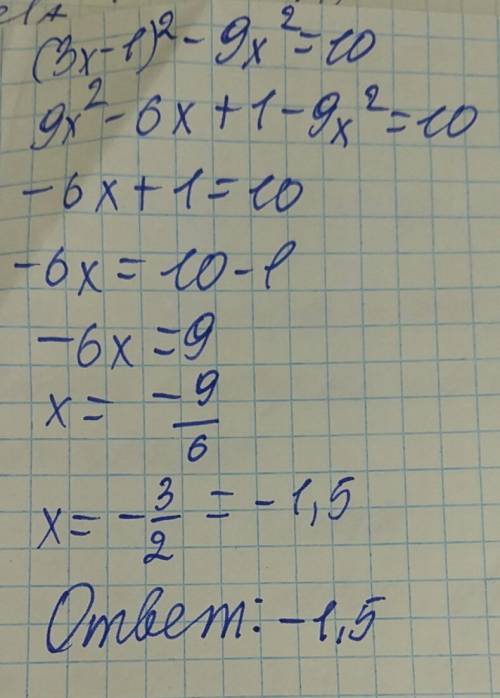 (3x-1)²-9x²=10
9x²-6x+1-9x²=10
-6x+1=10
-6x=10-1
-6x=9
x= -9/6
x= -3/2 = -1,5
Ответ: -1,5